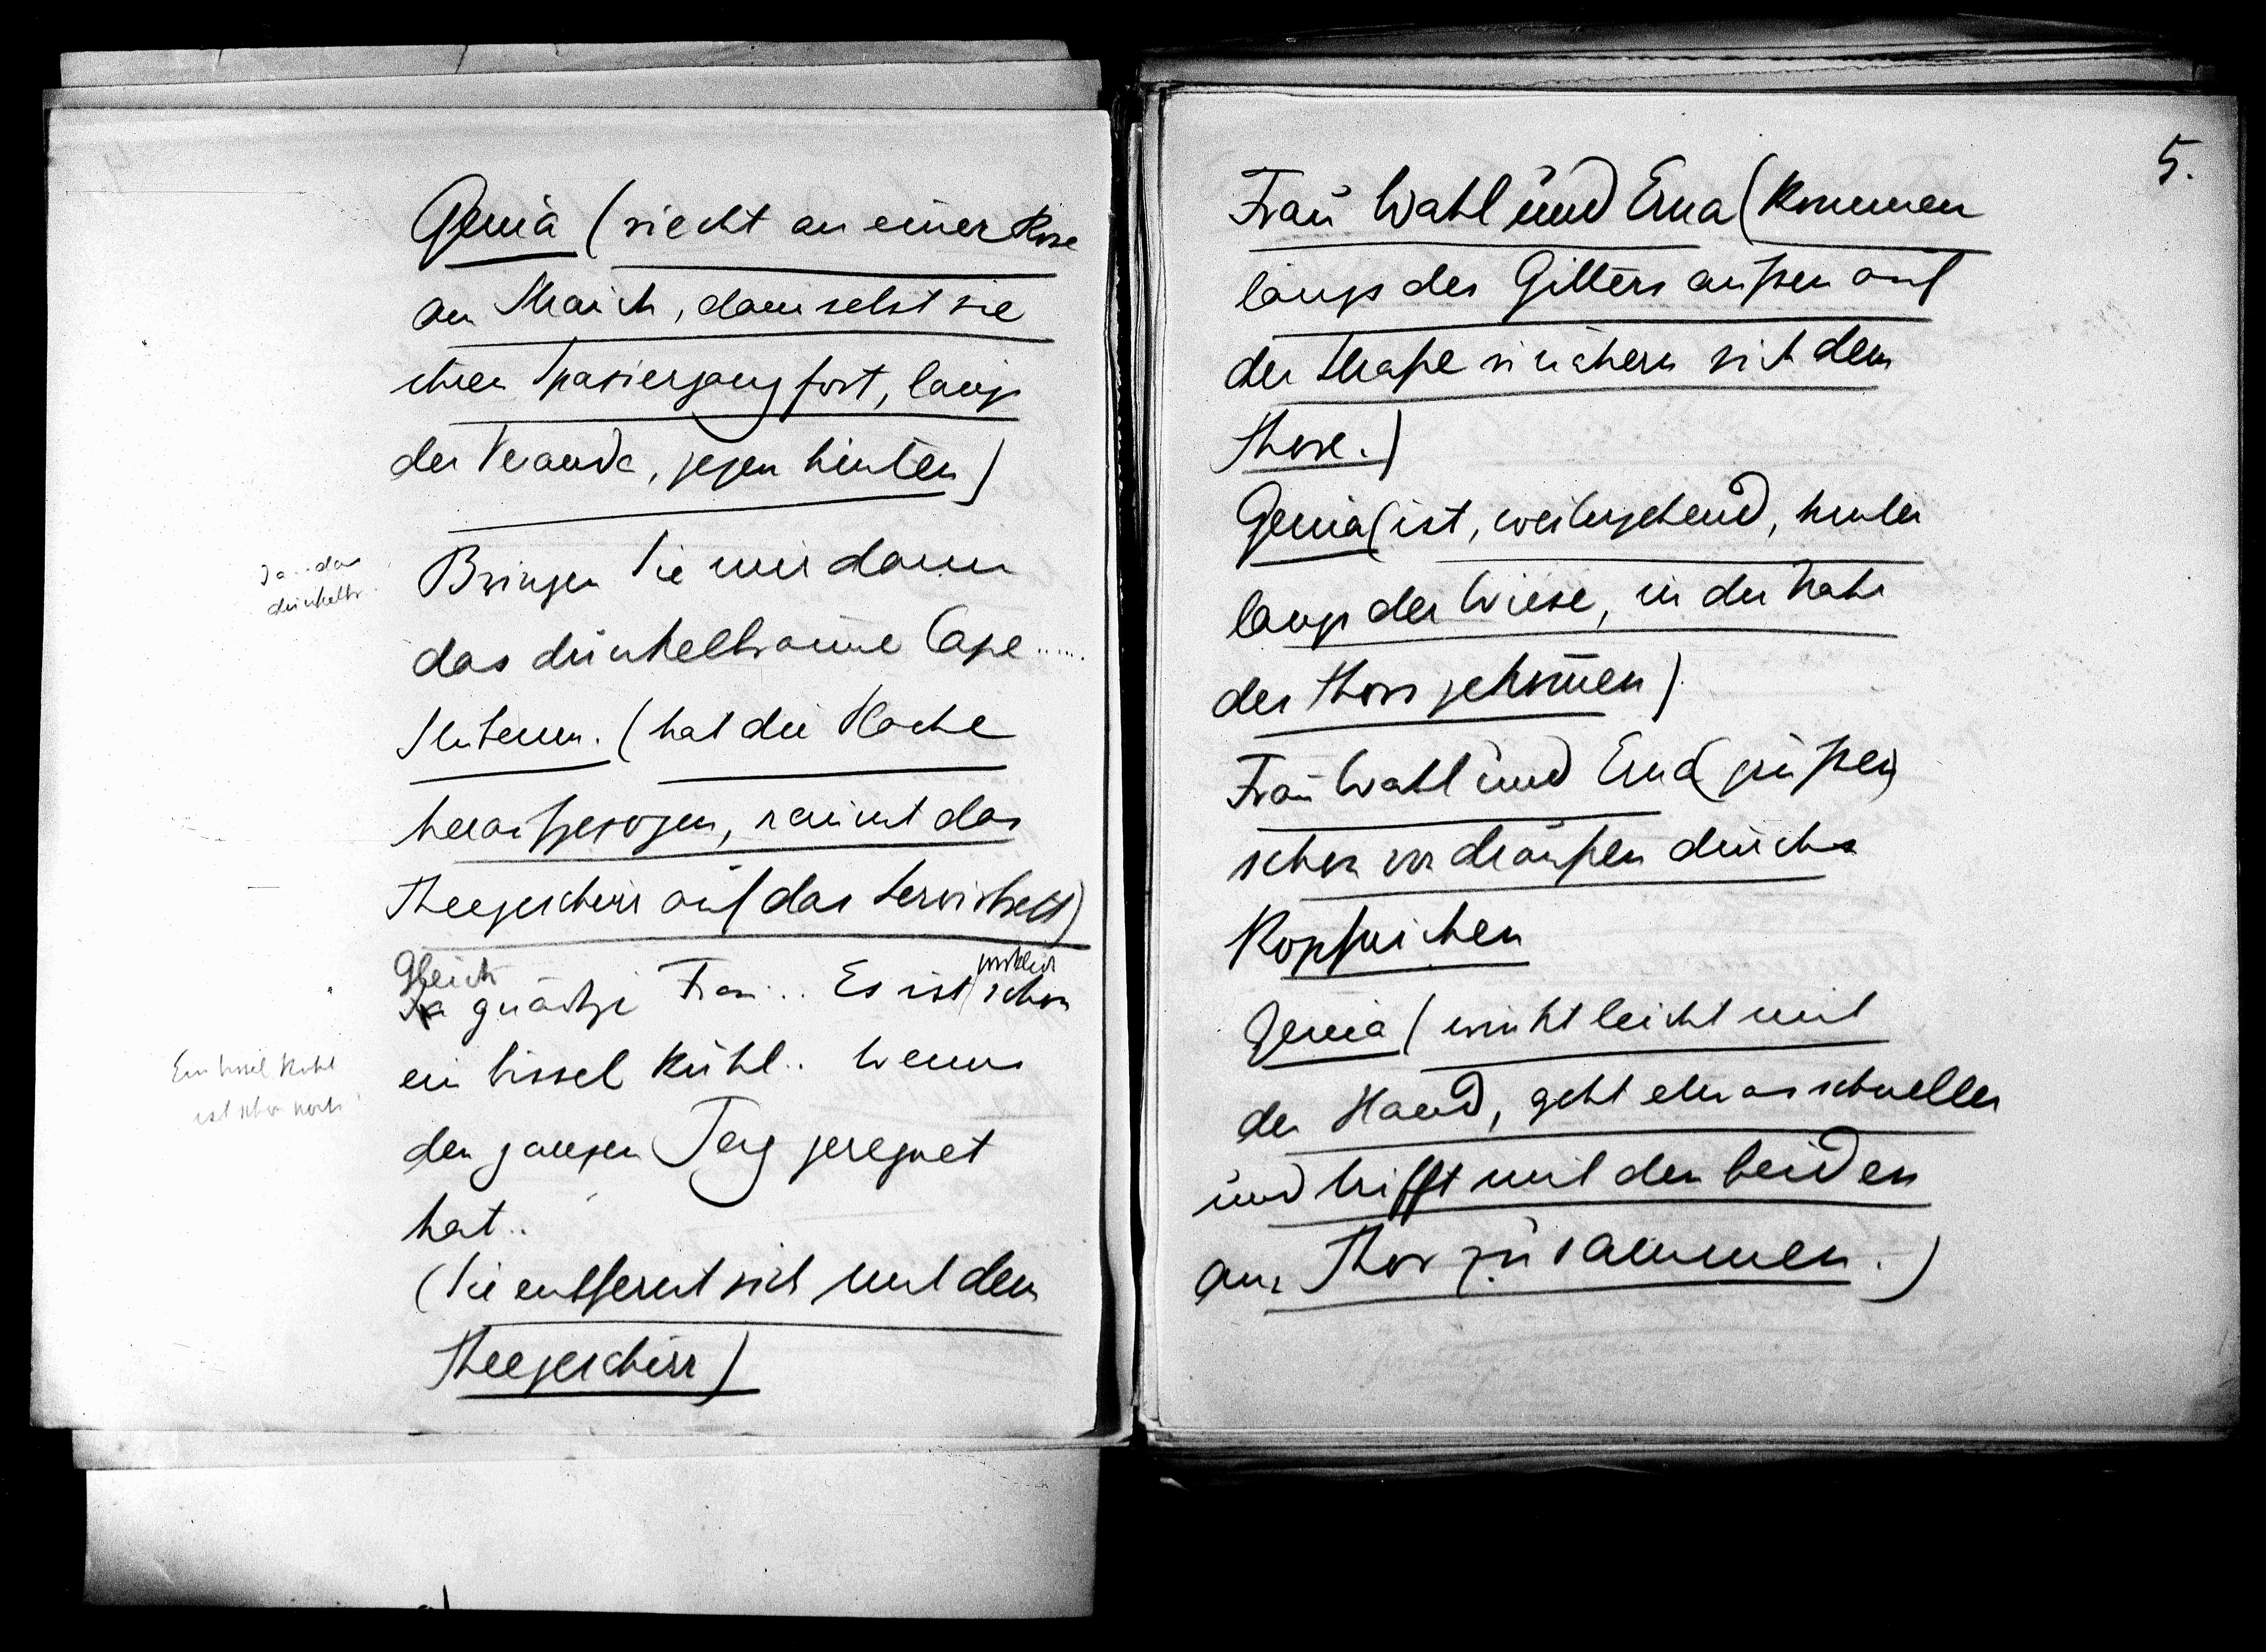 Genia (riecht an einer Rose
am Strauch, dann setzt sie
ihren Spaziergang fort, längs
der Veranda, gegen hinten)
Ja .. das
dunkelbr.
Bringen Sie mir dann
das dunkelbraune Cape ......
Stubenm. (hat die Hacke
herausgezogen, räumt das
Theegeschirr auf das Servirbrett)
Gleich
Ja gnädge Frau .. Es ist wirklich schon
ein bissel kühl .. Wenns
Ein bissel kühl
ist schon
den ganzen Tag geregnet
hat ..
(Sie entfernt sich mit dem
Theegeschirr)
5.
Frau Wahl und Erna (kommen
längs des Gitters außen auf
der Straße u nähern sich dem
Thore.)
Genia (ist, weitergehend, hinter
längs der Wiese, in die Nähe
des Thors gekom̄en)
Frau Wahl und Erna (grüßen
schon von draußen durchs
Kopfnicken
Genia (winkt leicht mit
der Hand, geht etwas schneller
und trifft mit den beiden
am Thor zusammen.)